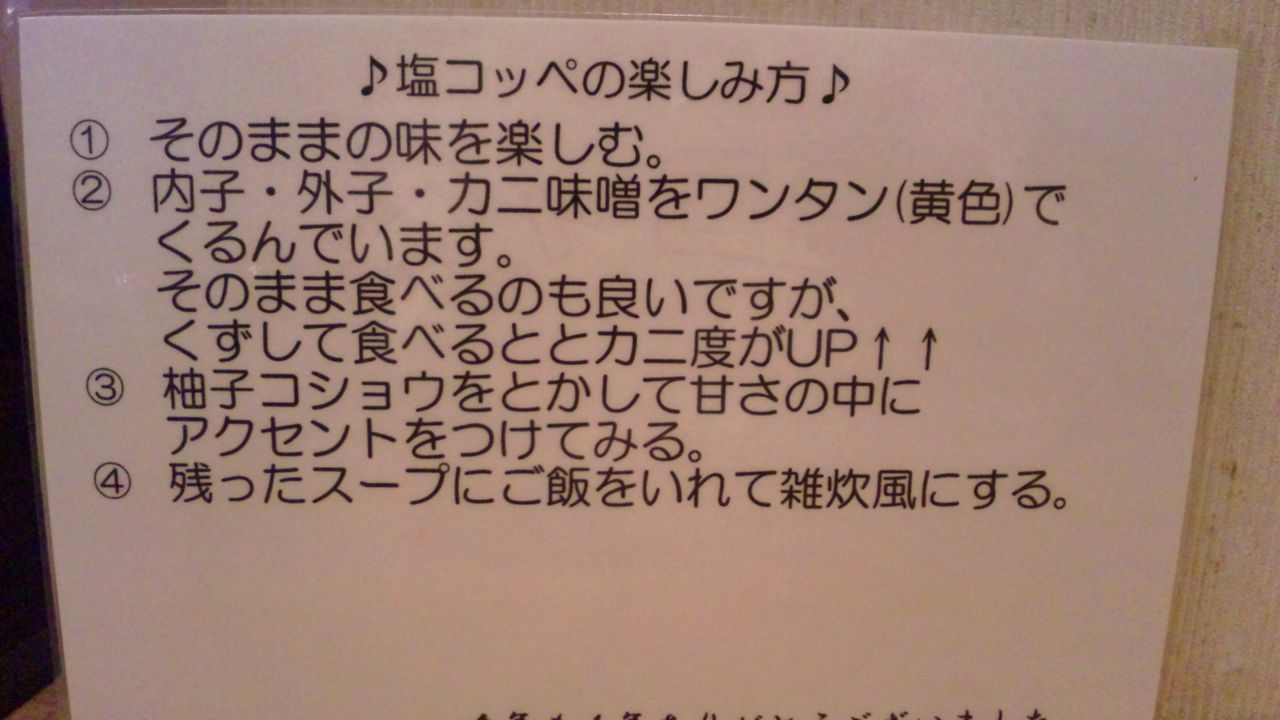 ♪塩コッペの楽しみ方♪
① そのままの味を楽しむ。
② 内子・外子・カニ味噌をワンタン(黄色)で
くるんでいます。
そのまま食べるのも良いですが、
くずして食べるととカニ度がUP↑↑
③ 柚子コショウをとかして甘さの中に
アクセントをつけてみる。
④ 残ったスープにご飯をいれて雑炊風にする。